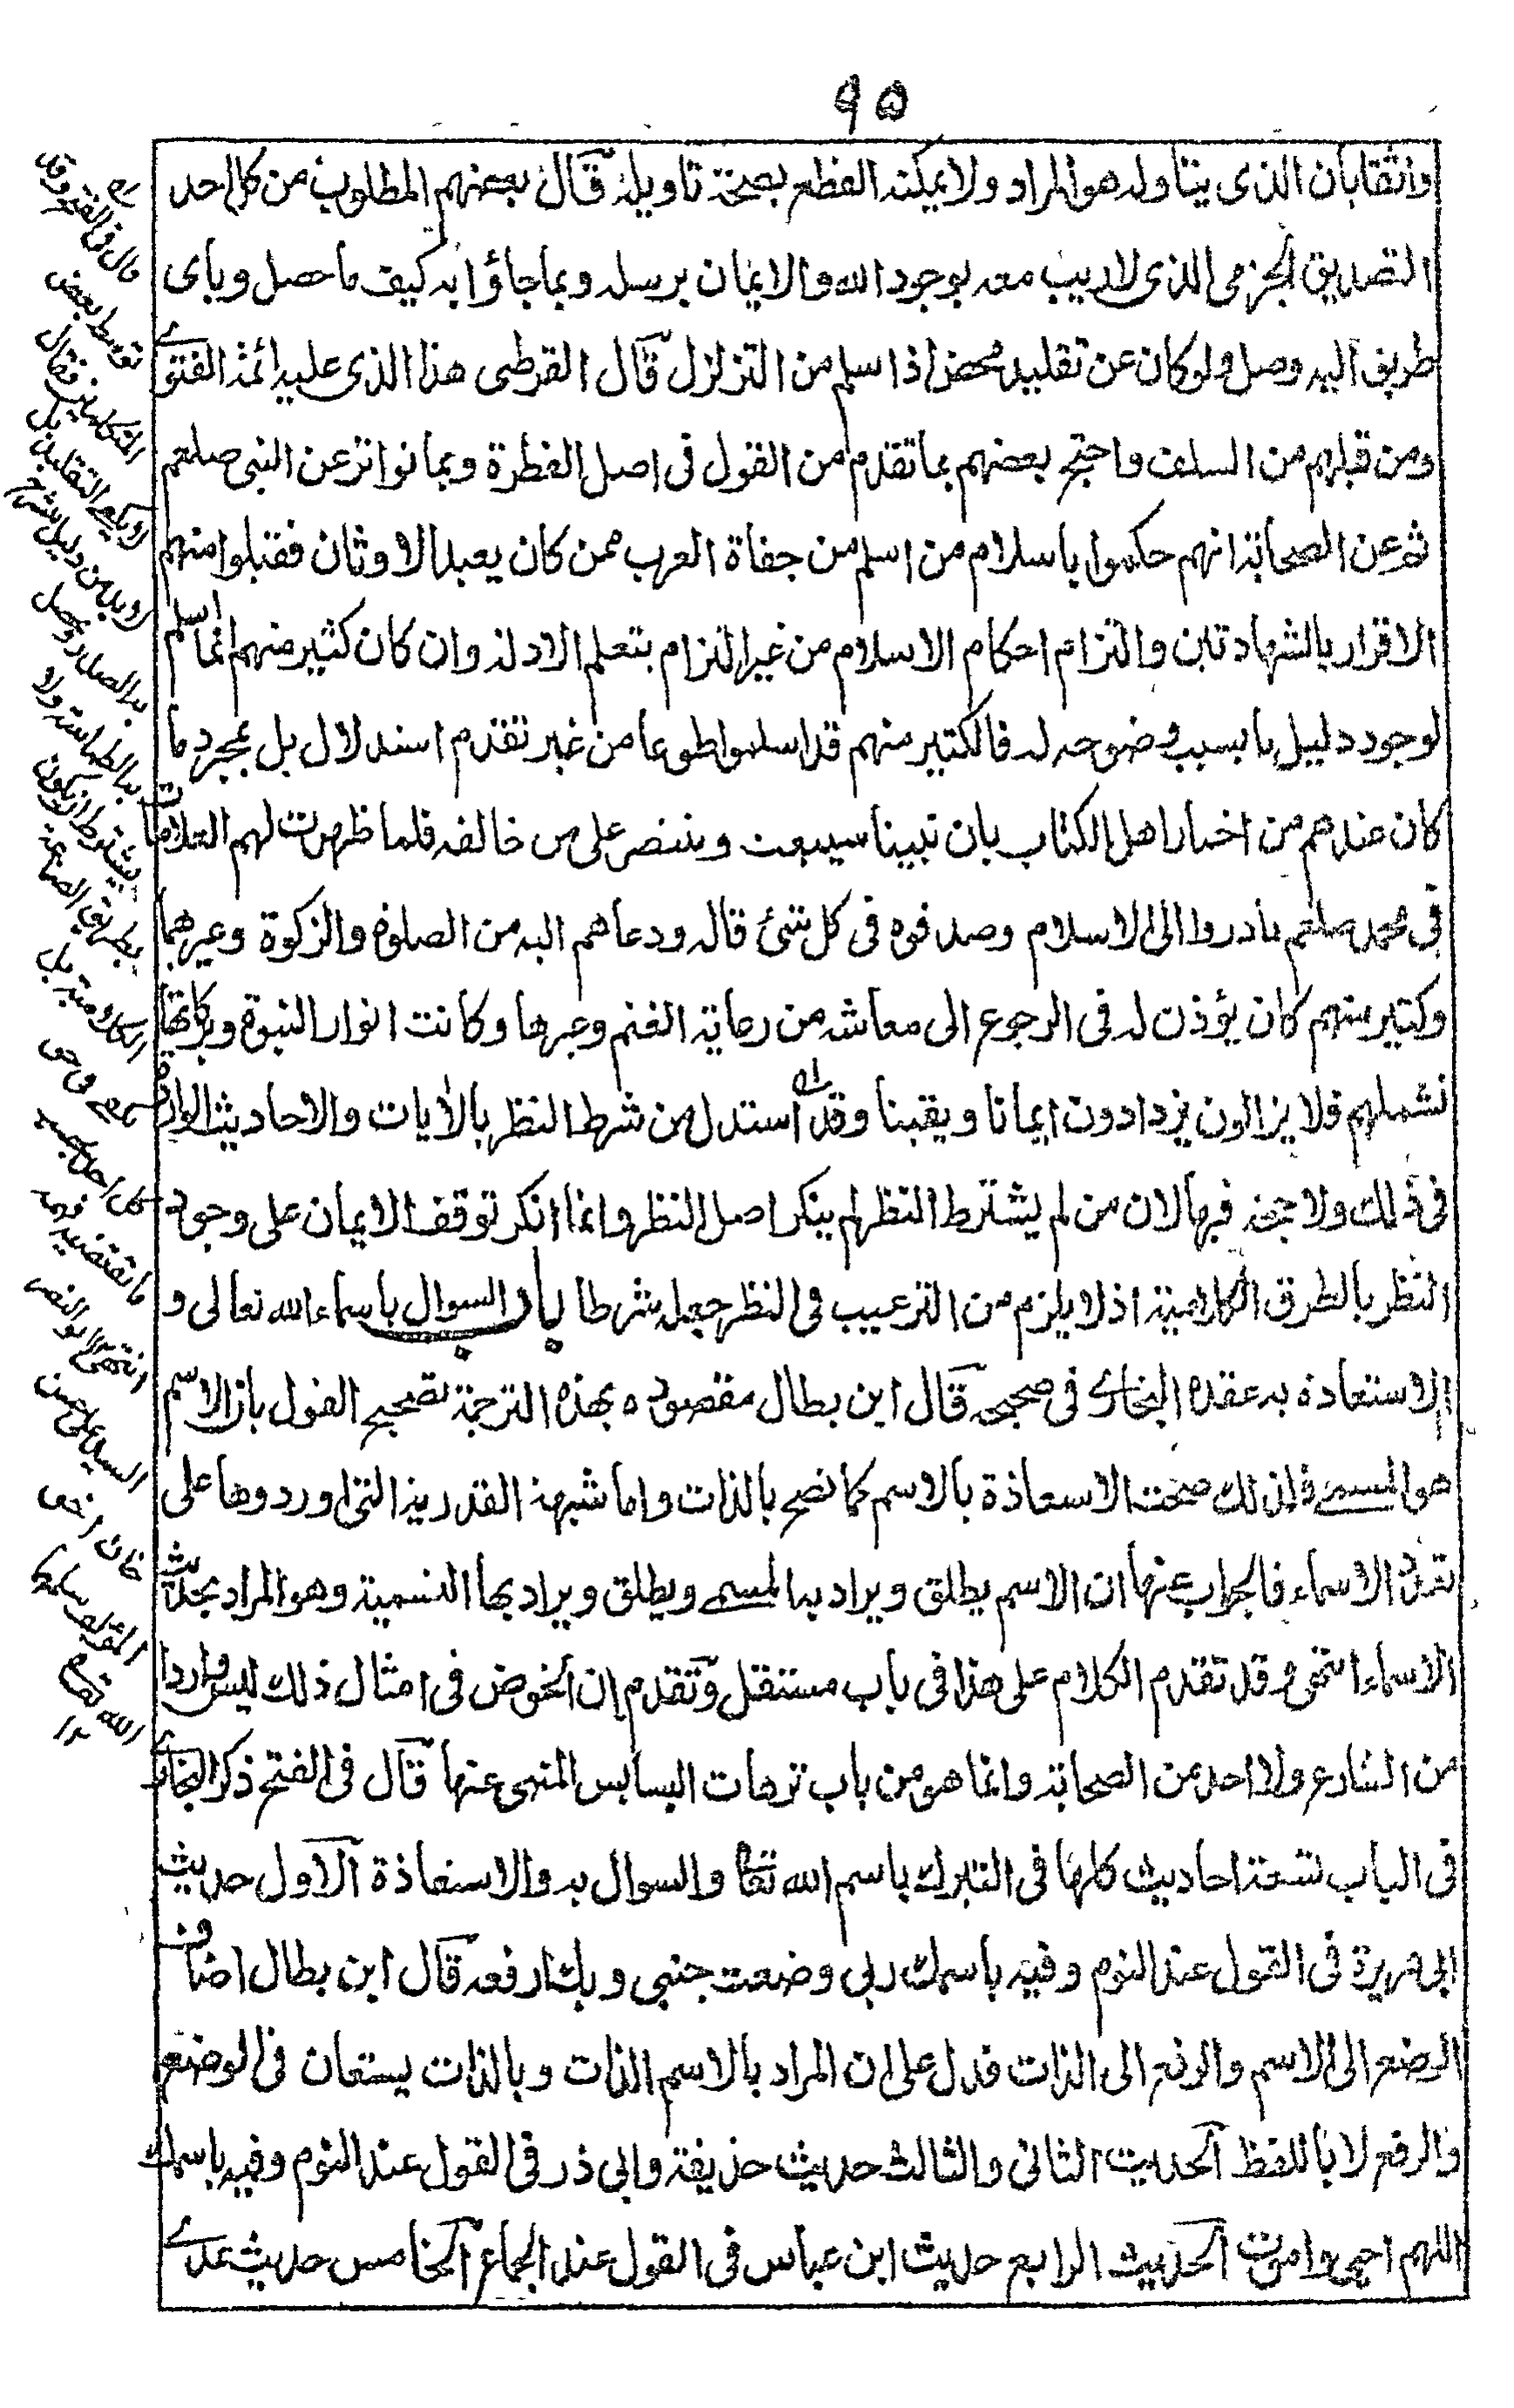 ٩٥
واثقا بان الذى يتاوله هو المراد ولا يمكنه القطع بصحة تاويله قال بعضهم المطلوب من كل احد
التصديق الجزمى الذى لا ريب معه بوجود الله والايمان برسله وبما جاؤا به كيف ما حصل وباى
طريق اليه وصل ولو كان عن تقليد محض اذا سلم من التزلزل قال القرطبى هذا الذى عليه ائمة الفتوے
ومن قبلهم من السلف واحتج بعضهم بما تقدم من القول فى اصل الفطرة وبما تواتر عن النبى صلعم
ثم عن الصحابة انهم حكموا باسلام من اسلم من جفاة العرب ممن كان يعبد الاوثان فقبلوا منهم
الاقرار بالشهادتين والتزام احكام الاسلام من غير الزام بتعلم الادلة وان كان كثير منهم انما اسلم
لوجود دليل ما بسبب وضوحه له فالكثير منهم قد اسلموا طوعا من غير تقدم استدلال بل بمجرد ما
كان عندهم من اخبار اهل الكتاب بان نبينا سيبعث وينتصر على من خالفه فلما ظهرت لهم العلامات
فى محمد صلعم بادروا الى الاسلام وصدقوه فى كل شئ قاله ودعاهم اليه من الصلوة والزكوة وغيرهما
وكثير منهم كان يؤذن له فى الرجوع الى معاشه من رعاية الغنم وغيرها وكانت انوار النبوة وبركاتها
تشملهم فلا يزالون يزدادون ايمانا ويقينا وقد استدل من شرط النظر بالأيات والاحاديث الواردة
فى ذلك ولا حجة فيها لان من لم يشترط النظر لم ينكر اصل النظر وانما انكر توقف الايمان على وجود
النظر بالطرق الكلامية اذ لا يلزم من الترغيب فى النظر جعله شرطا باب السوال باسماء الله تعالى و
الاستعاذة به عقده البخارے فى صحيحه قال ابن بطال مقصوده بهذه الترجمة تصحيح القول بان الاسم
هو المسمے فلذلك صحت الاستعاذة بالاسم كما تصح بالذات واما شبهة القدرية التى اوردوها على
تعدد الاسماء فالجواب عنها ان الاسم يطلق ويراد به المسمے ويطلق ويراد بها التسمية وهو المراد بحديث
الاسماء انتهى وقد تقدم الكلام على هذا فى باب مستقل وتقدم ان الخوض فى امثال ذلك ليس واردا
من الشارع ولا احد من الصحابة وانما هو من باب ترهات البسابس المنهى عنها قال فى الفتح ذكر البخارے
فى الباب تسعة احاديث كلها فى التبرك باسم الله تعا والسوال به والاستعاذة الاول حديث
ابى هريرة فى القول عند النوم وفيه باسمك ربى وضعت جنبى وبك ارفعه قال ابن بطال اضاف
الوضع الى الاسم والرفع الى الذات فدل على ان المراد بالاسم الذات وبالذات يستعان فى الوضع
والرفع لا باللفظ الحديث الثانى والثالث حديث حذيفة وابى ذر فى القول عند النوم وفيه باسمك
اللهم احيى واموت الحديث الرابع حديث ابن عباس فى القول عند الجماع الخامس حديث عدے
قال فى الفتح وقد
توسط بعض
المتكلمين فقال
لا يكفے التقليد بل
لا بد من دليل ينشرح
به الصدر وتحصل
به الطمانينة ولا
يشترط ان يكون
بطريق الصناعة
الكلامية بل
يكفے فى حق
كل احد بحسب
ما يقتضيه فهمه
انتهى ابو النصر
السيد على حسن
خان اخى
المؤلف سلمهما
الله تعالى
١٢